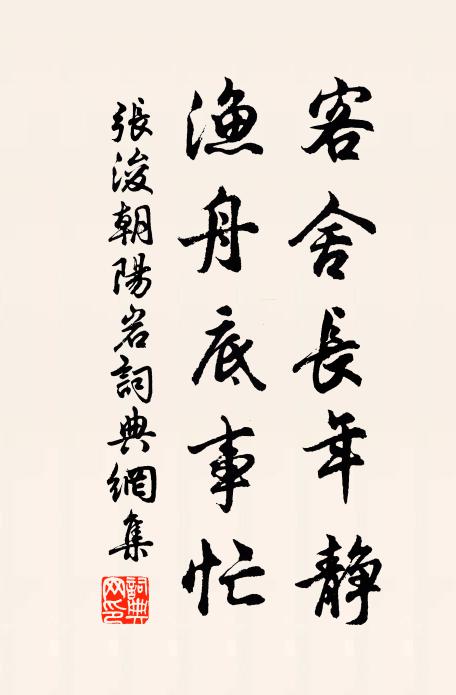 客舍長年靜
漁舟底事忙
張浚朝陽岩詞典網集
詞典網印